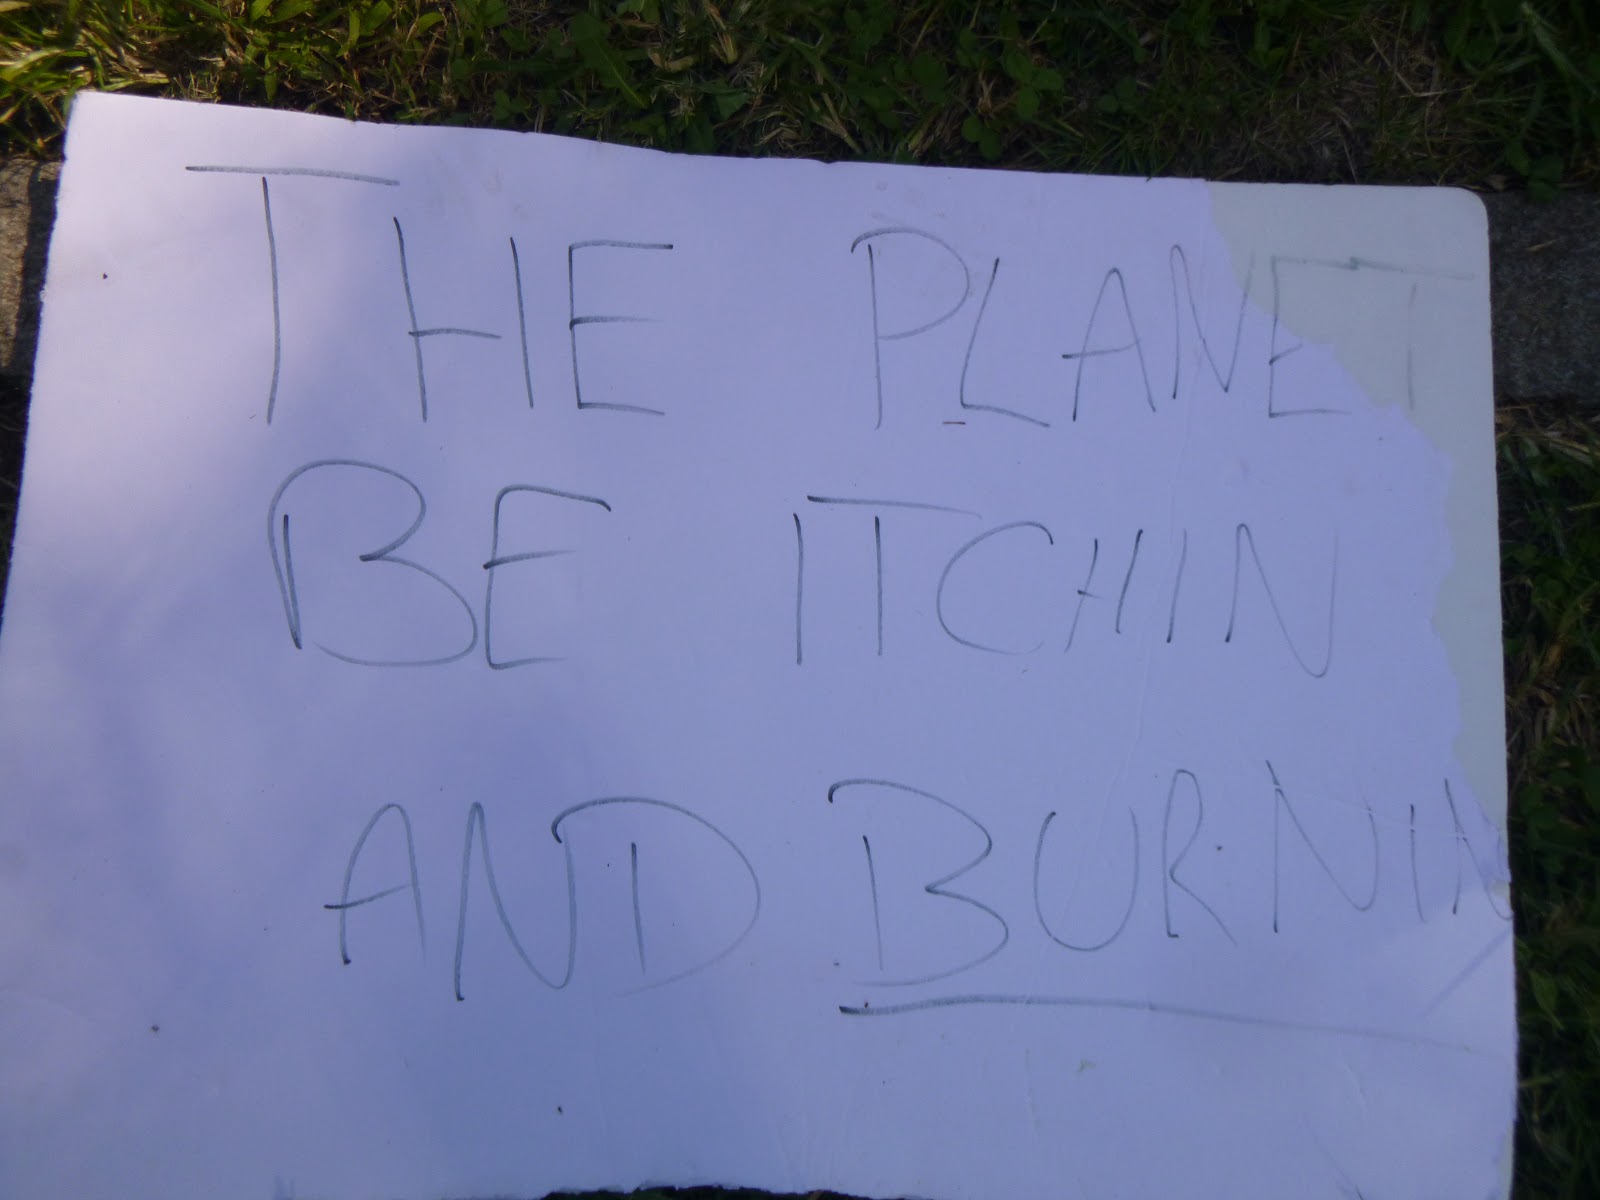 THE PLANET
BE ITCHIN
AND BURNIN